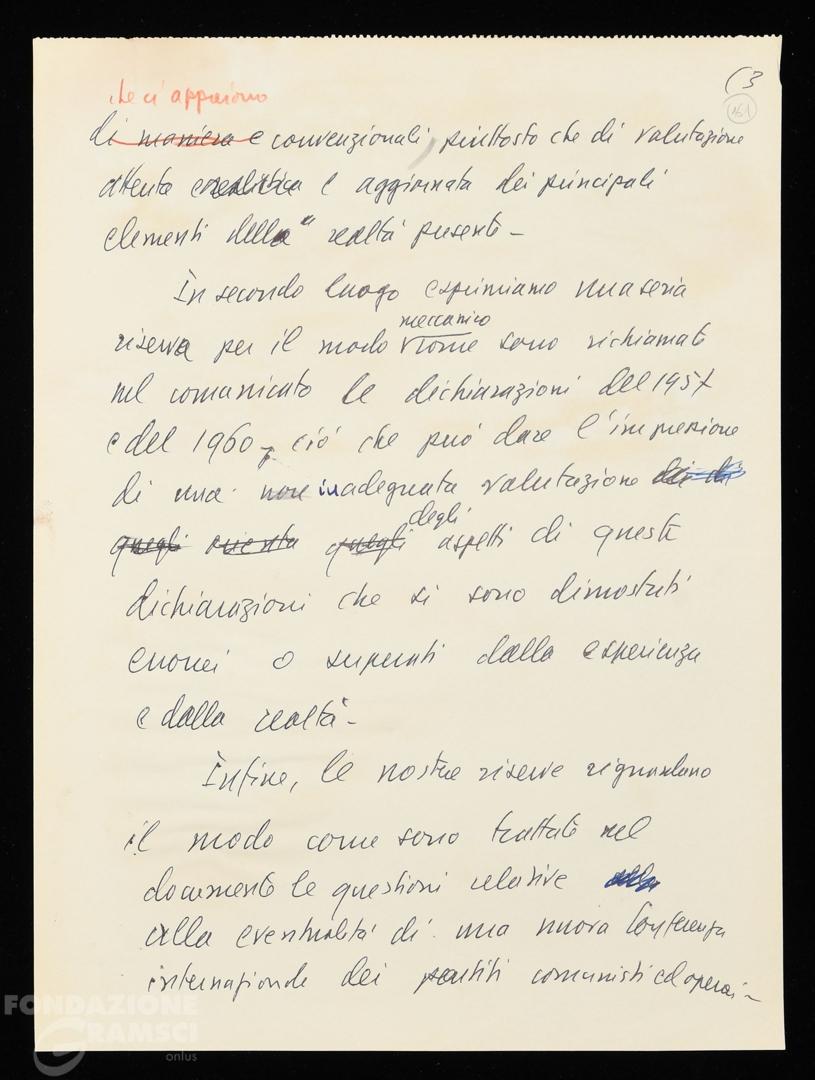 (3
161
che ci appaiono
di maniera e convenzionali, piuttosto che di valutazione
attenta e realistica e aggiornata dei principali
elementi della realtà presente –
In secondo luogo esprimiamo una seria
meccanico
riserva per il modo come sono richiamate
nel comunicato le dichiarazioni del 1957
e del 1960, ciò che può dare l'impressione
di una non inadeguata valutazione
degli
quegli quegli aspetti di queste
dichiarazioni che si sono dimostrati
erronei o superati dalla esperienza
e dalla realtà –
Infine, le nostre riserve riguardano
il modo come sono trattate nel
documento le questioni relative alla
alla eventualità di una nuova Conferenza
internazionale dei partiti comunisti ed operai –
FONDAZIONE
GRAMSCI
onlus